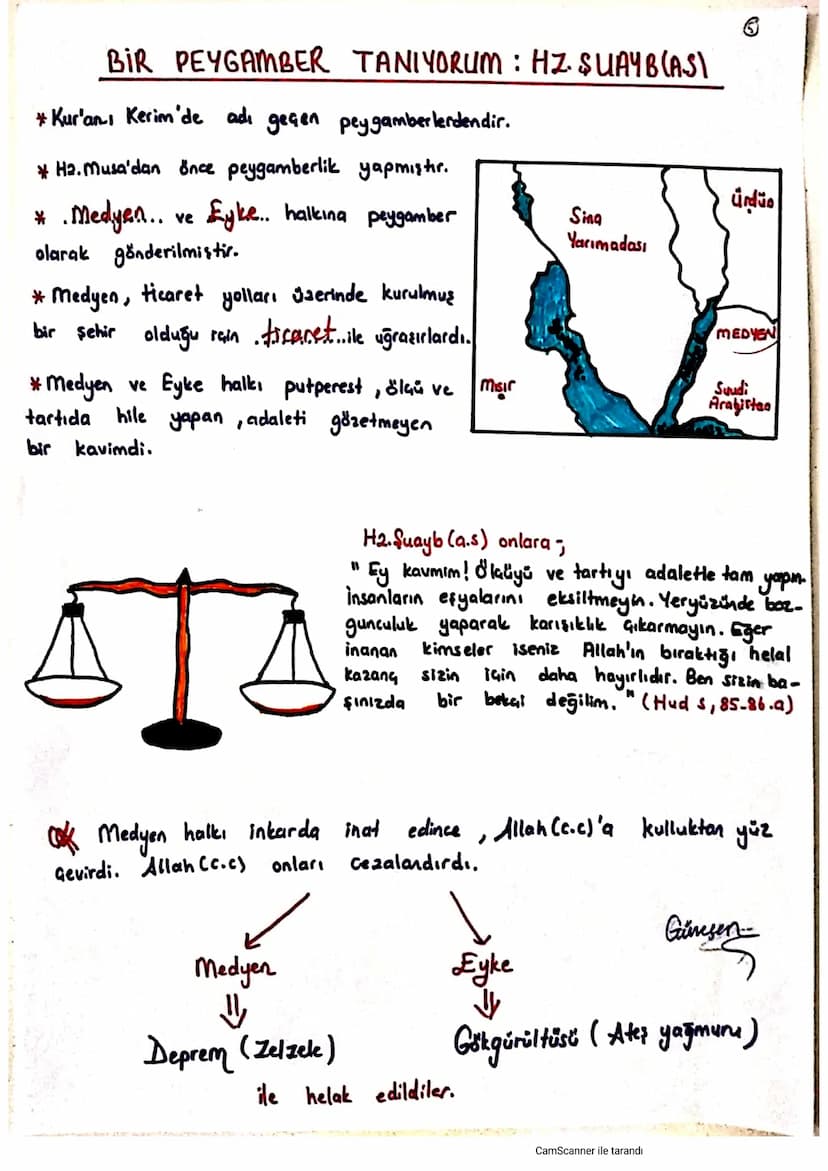 5
BİR PEYGAMBER TANIYORUM : HZ. ŞUAYB(AS)
* Kur'an-ı Kerim'de adı geçen peygamberlerdendir.
* Hz. Musa'dan önce peygamberlik yapmıştır.
* .Medyen.. ve Eyke.. halkına peygamber
olarak gönderilmiştir.
* Medyen, ticaret yolları üzerinde kurulmuş
bir şehir olduğu için .ticaret..ile uğraşırlardı.
* Medyen ve Eyke halkı putperest, ölçü ve
tartıda hile yapan, adaleti gözetmeyen
bir kavimdi.
Sina
Yarımadası
Ürdün
MEDYEN
Mısır
Suudi
Arabistan
Hz. Şuayb (a.s) onlara -;
" Ey kavmim! Ölçüyü ve tartıyı adaletle tam yapın.
İnsanların eşyalarını eksiltmeyin. Yeryüzünde boz-
gunculuk yaparak karışıklık çıkarmayın. Eğer
inanan kimseler iseniz Allah'ın bıraktığı helal
kazanç sizin için daha hayırlıdır. Ben sizin ba-
şınızda bir bekçi değilim. " (Hud s, 85-86.a)
Medyen halkı inkarda inat edince, Allah (c.c)'a kulluktan yüz
çevirdi. Allah (c.c) onları cezalandırdı.
Güneşen
Medyen
Eyke
Deprem (Zelzele)
Gökgürültüsü ( Ateş yağmuru )
ile helak edildiler.
CamScanner ile tarandı